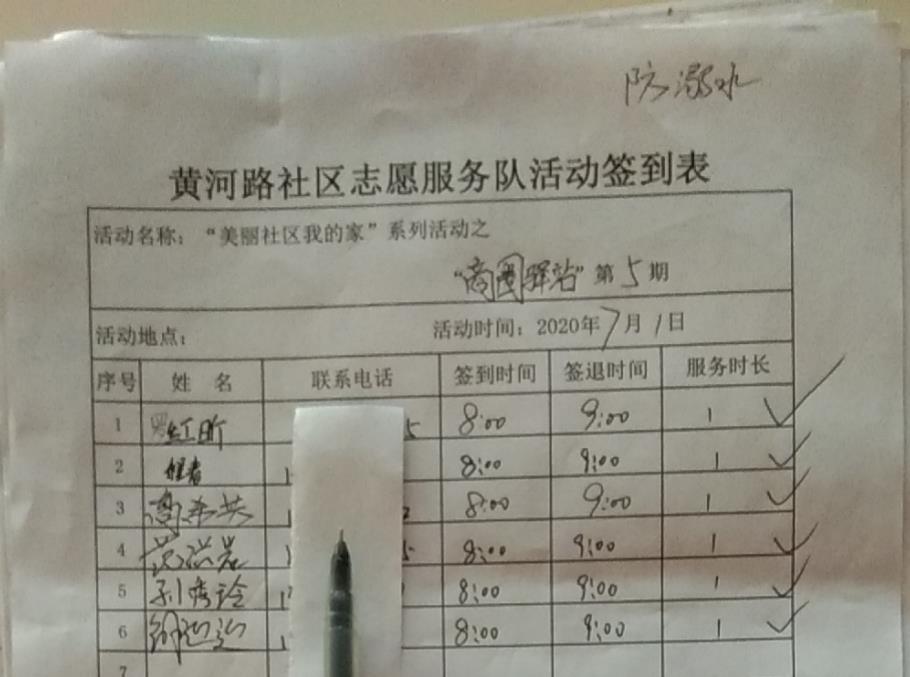 防溺水
黄河路社区志愿服务队活动签到表
活动名称：“美丽社区我的家”系列活动之
“商圈驿站”第5期
活动地点： 活动时间：2020年7月1日
序号 姓 名 联系电话 签到时间 签退时间 服务时长
1 红昕 5 8:00 9:00 1 ✓
2 8:00 9:00 1 ✓
3 8:00 9:00 1 ✓
4 8:00 9:00 1 ✓
5 孙秀玲 8:00 9:00 1 ✓
6 8:00 9:00 1 ✓
7